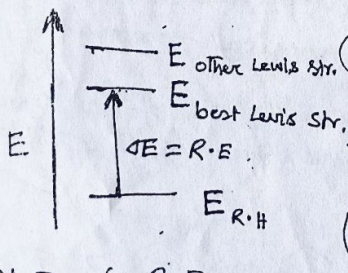 E other Lewis str.
E best Lewis str.
E
ΔE = R·E
E R·H